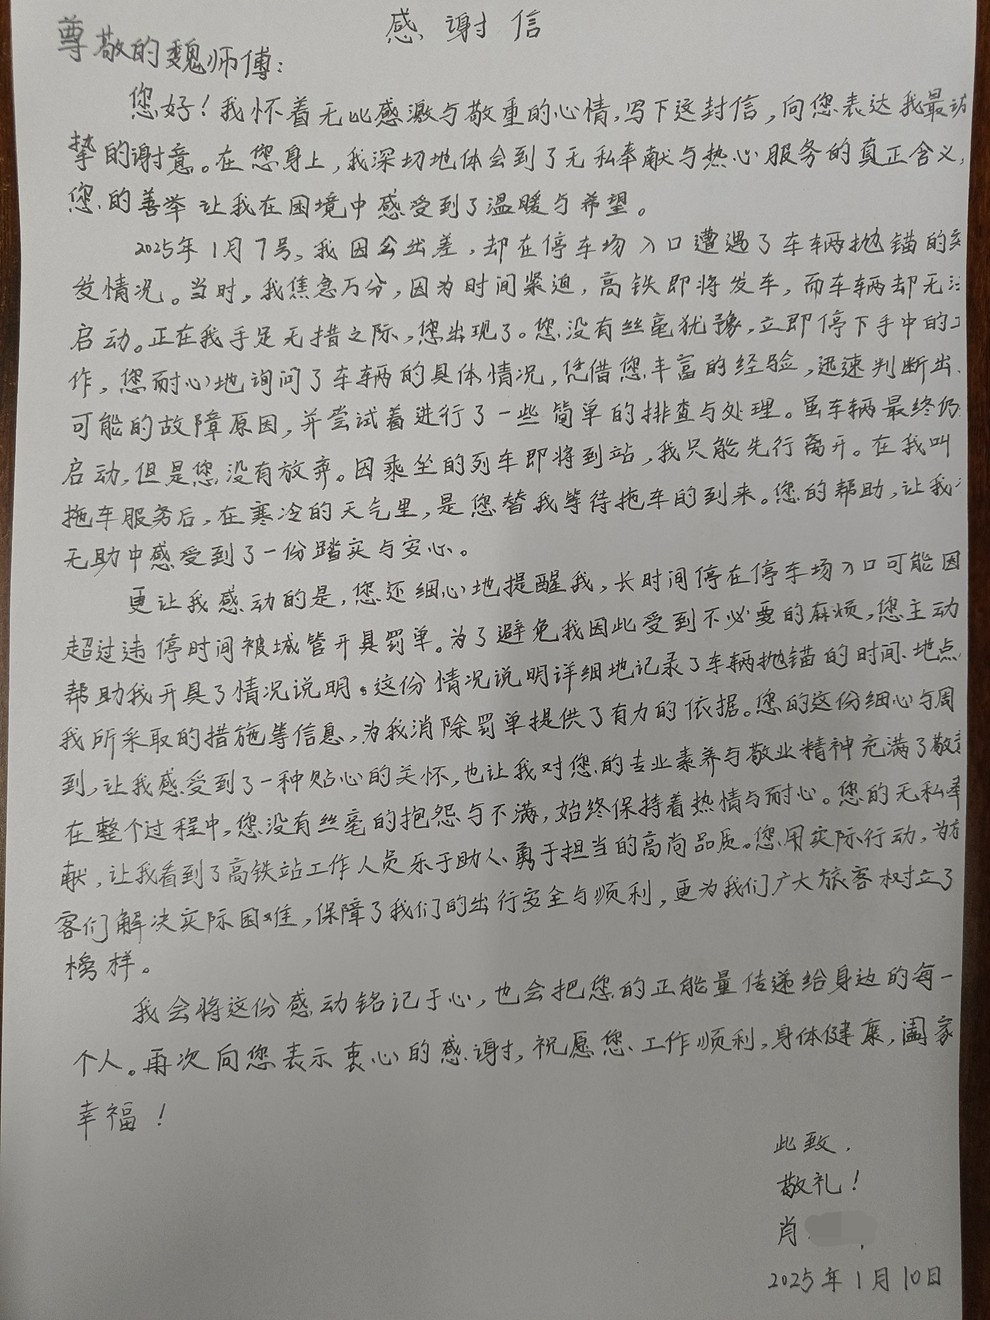 感谢信
尊敬的魏师傅：
您好！我怀着无比感激与敬重的心情，写下这封信，向您表达我最
挚的谢意。在您身上，我深切地体会到了无私奉献与热心服务的真正含义，
您的善举让我在困境中感受到了温暖与希望。
2025年1月7号，我因公出差，却在停车场入口遭遇了车辆抛锚的
发情况。当时，我焦急万分，因为时间紧迫，高铁即将发车，而车辆却无
启动。正在我手足无措之际，您出现了。您没有丝毫犹豫，立即停下手中的
作，您耐心地询问了车辆的具体情况，凭借您丰富的经验，迅速判断出
可能的故障原因，并尝试着进行了一些简单的排查与处理。虽车辆最终仍
启动，但是您没有放弃。因乘坐的列车即将到站，我只能先行离开。在我叫
拖车服务后，在寒冷的天气里，是您替我等待拖车的到来。您的帮助，让我
无助中感受到了一份踏实与安心。
更让我感动的是，您还细心地提醒我，长时间停在停车场入口可能因
超过违停时间被城管开具罚单。为了避免我因此受到不必要的麻烦，您主动
帮助我开具了情况说明。这份情况说明详细地记录了车辆抛锚的时间、地点
我所采取的措施等信息，为我消除罚单提供了有力的依据。您的这份细心与周
到，让我感受到了一种贴心的关怀，也让我对您的专业素养与敬业精神充满了敬
在整个过程中，您没有丝毫的抱怨与不满，始终保持着热情与耐心。您的无私奉
献，让我看到了高铁站工作人员乐于助人、勇于担当的高尚品质。您用实际行动，为
客们解决实际困难，保障了我们的出行安全与顺利，更为我们广大旅客树立了
榜样。
我会将这份感动铭记于心，也会把您的正能量传递给身边的每一
个人。再次向您表示衷心的感谢，祝愿您工作顺利，身体健康，阖家
幸福！
此致，
敬礼！
肖
2025年1月10日